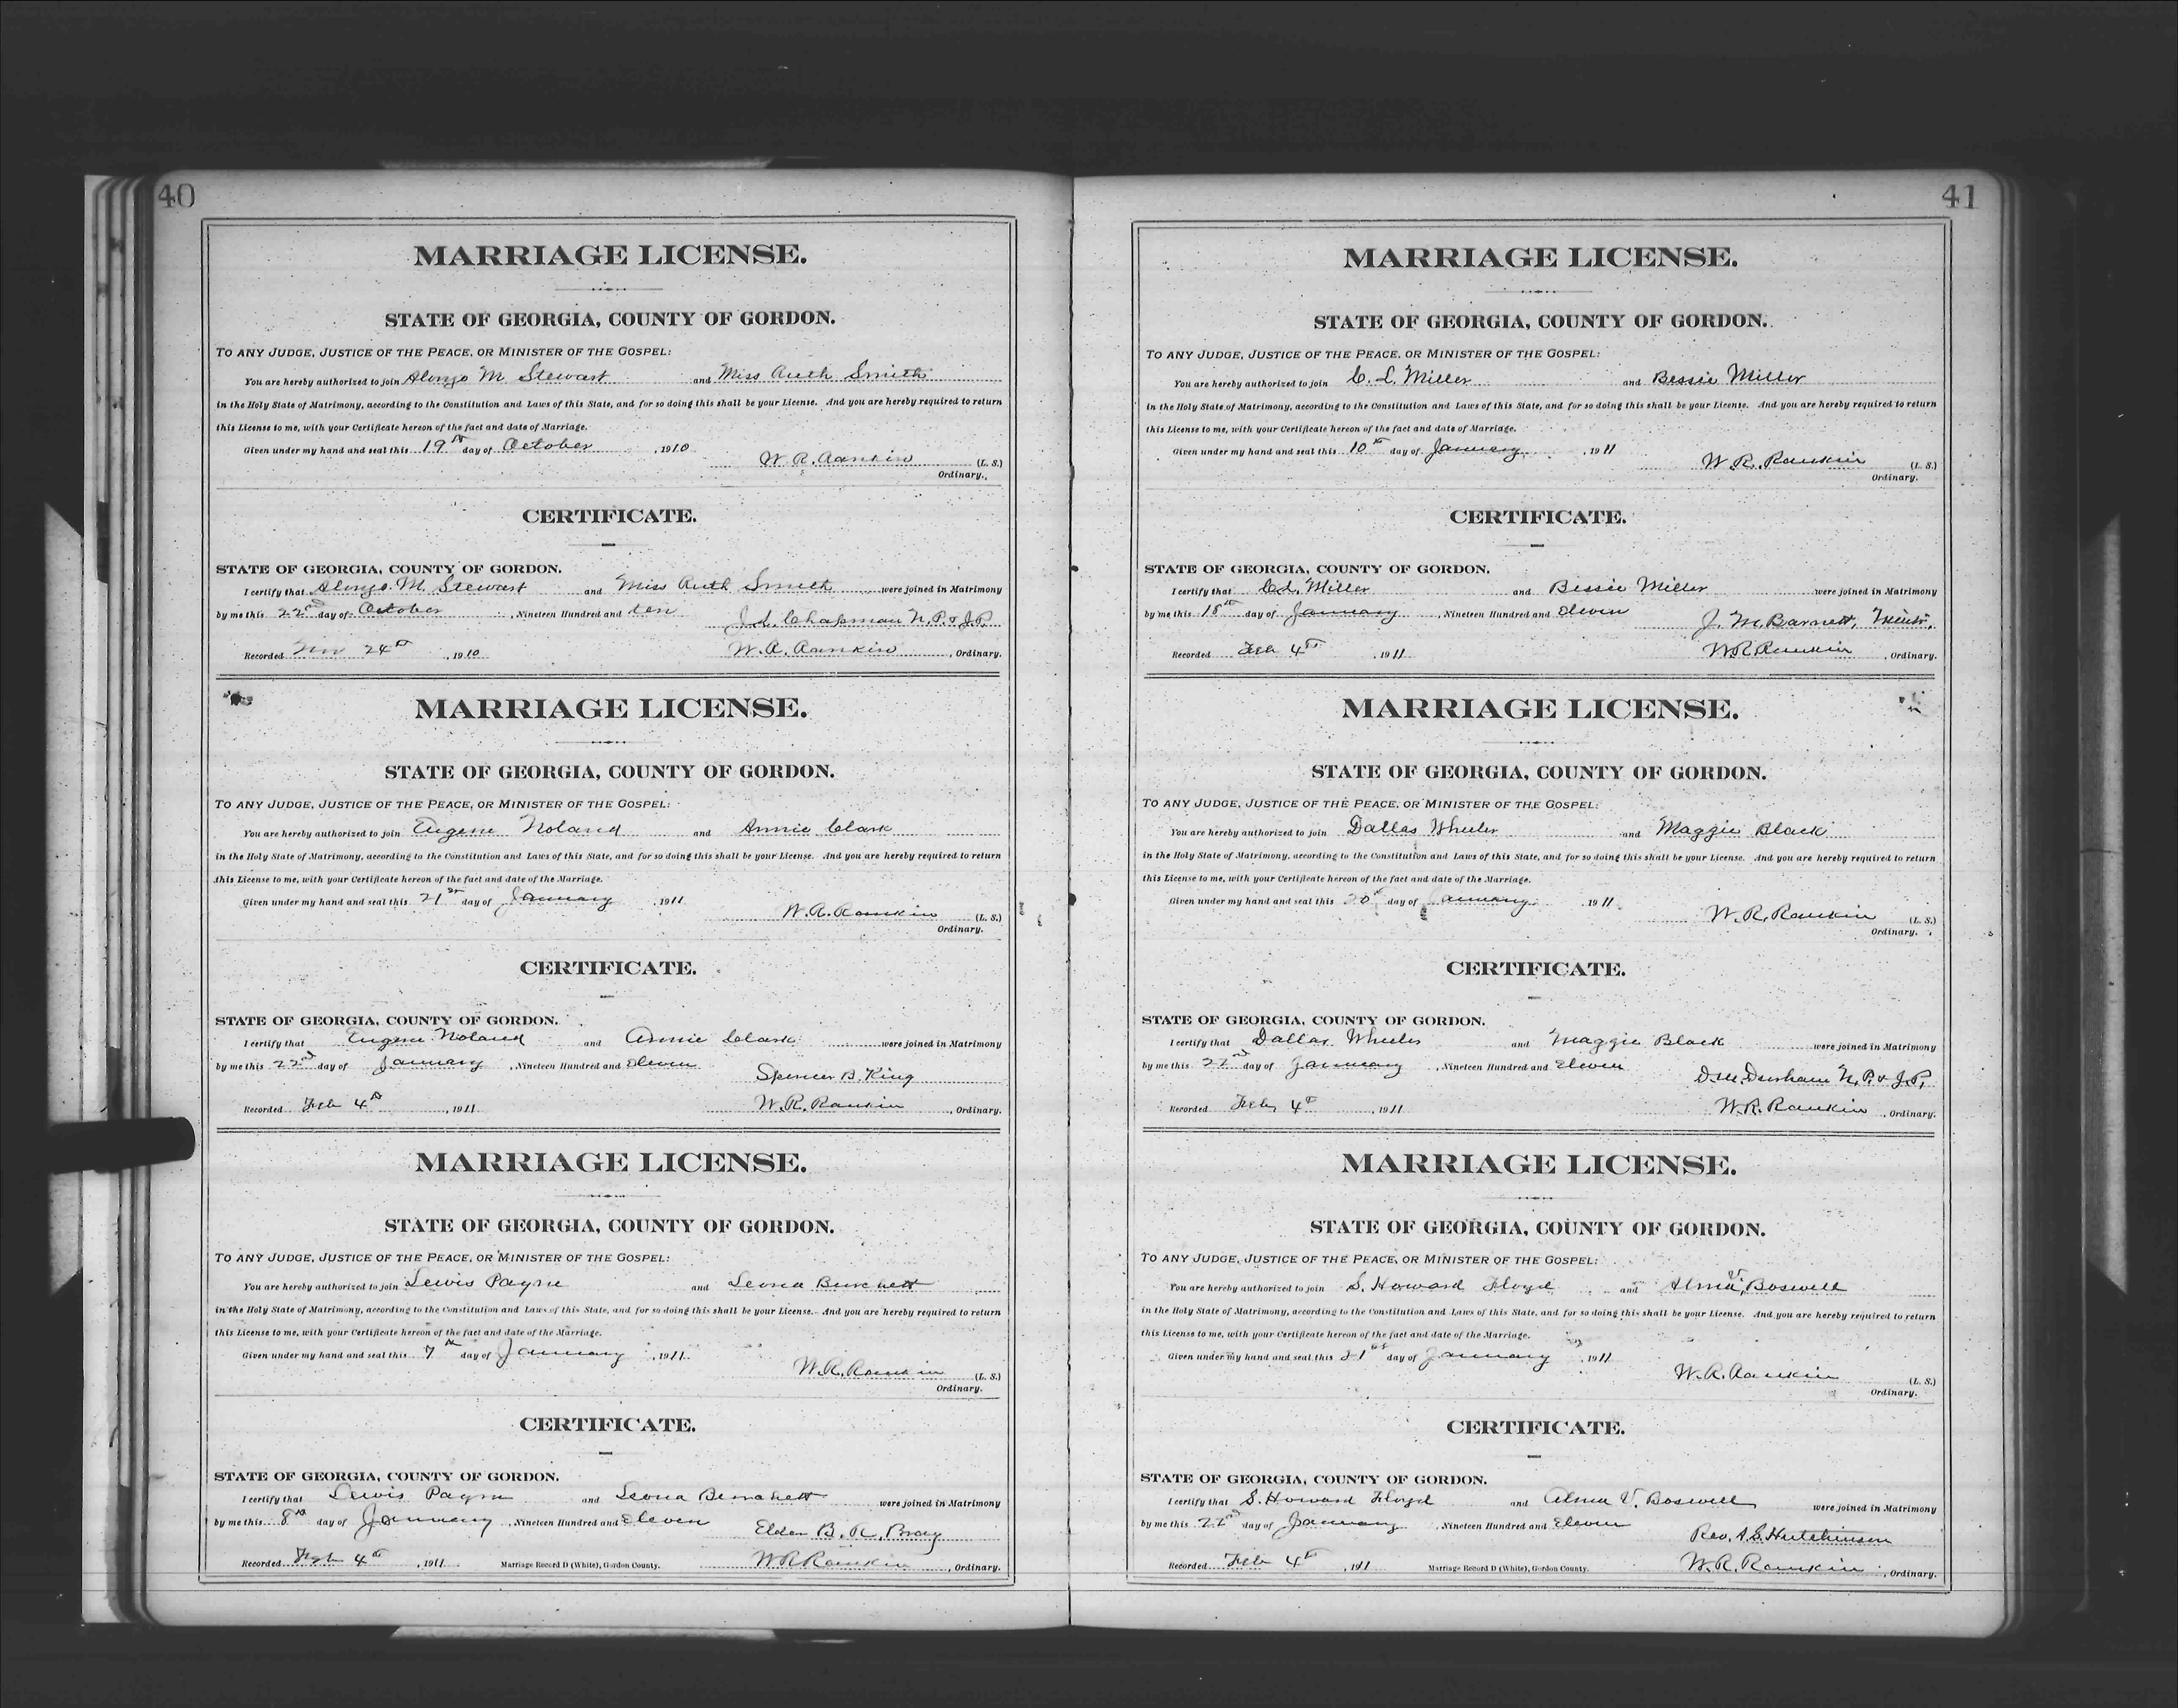 40
MARRIAGE LICENSE.
STATE OF GEORGIA, COUNTY OF GORDON.
TO ANY JUDGE, JUSTICE OF THE PEACE, OR MINISTER OF THE GOSPEL:
You are hereby authorized to join Alonzo M. Stewart and Miss Ruth Smith
in the Holy State of Matrimony, according to the Constitution and Laws of this State, and for so doing this shall be your License. And you are hereby required to return
this License to me, with your Certificate hereon of the fact and date of Marriage.
Given under my hand and seal this 19th day of October, 1910
W. R. Rankin (L. S.)
Ordinary.
CERTIFICATE.
STATE OF GEORGIA, COUNTY OF GORDON.
I certify that Alonzo M. Stewart and Miss Ruth Smith were joined in Matrimony
by me this 22nd day of October, Nineteen Hundred and ten
J. L. Chapman N. P. & J. P.
Recorded Nov 24th, 1910 W. R. Rankin, Ordinary.
MARRIAGE LICENSE.
STATE OF GEORGIA, COUNTY OF GORDON.
TO ANY JUDGE, JUSTICE OF THE PEACE, OR MINISTER OF THE GOSPEL:
You are hereby authorized to join Eugene Noland and Annie Clark
in the Holy State of Matrimony, according to the Constitution and Laws of this State, and for so doing this shall be your License. And you are hereby required to return
this License to me, with your Certificate hereon of the fact and date of the Marriage.
Given under my hand and seal this 21st day of January, 1911
W. R. Rankin (L. S.)
Ordinary.
CERTIFICATE.
STATE OF GEORGIA, COUNTY OF GORDON.
I certify that Eugene Noland and Annie Clark were joined in Matrimony
by me this 22nd day of January, Nineteen Hundred and Eleven
Spencer B. King
Recorded Feb 4th, 1911 W. R. Rankin, Ordinary.
MARRIAGE LICENSE.
STATE OF GEORGIA, COUNTY OF GORDON.
TO ANY JUDGE, JUSTICE OF THE PEACE, OR MINISTER OF THE GOSPEL:
You are hereby authorized to join Lewis Payne and Leona Burchett
in the Holy State of Matrimony, according to the Constitution and Laws of this State, and for so doing this shall be your License. And you are hereby required to return
this License to me, with your Certificate hereon of the fact and date of the Marriage.
Given under my hand and seal this 7th day of January, 1911
W. R. Rankin (L. S.)
Ordinary.
CERTIFICATE.
STATE OF GEORGIA, COUNTY OF GORDON.
I certify that Lewis Payne and Leona Burchett were joined in Matrimony
by me this 8th day of January, Nineteen Hundred and Eleven
Elder B. R. Bray
Recorded Feb 4th, 1911 Marriage Record D (White), Gordon County. W R Rankin, Ordinary.
41
MARRIAGE LICENSE.
STATE OF GEORGIA, COUNTY OF GORDON.
TO ANY JUDGE, JUSTICE OF THE PEACE, OR MINISTER OF THE GOSPEL:
You are hereby authorized to join C. L. Miller and Bessie Miller
in the Holy State of Matrimony, according to the Constitution and Laws of this State, and for so doing this shall be your License. And you are hereby required to return
this License to me, with your Certificate hereon of the fact and date of Marriage.
Given under my hand and seal this 10th day of January, 1911
W. R. Rankin (L. S.)
Ordinary.
CERTIFICATE.
STATE OF GEORGIA, COUNTY OF GORDON.
I certify that C. L. Miller and Bessie Miller were joined in Matrimony
by me this 18th day of January, Nineteen Hundred and Eleven
J. M. Barnett,
Recorded Feb 4th, 1911 W R Rankin, Ordinary.
MARRIAGE LICENSE.
STATE OF GEORGIA, COUNTY OF GORDON.
TO ANY JUDGE, JUSTICE OF THE PEACE, OR MINISTER OF THE GOSPEL:
You are hereby authorized to join Dallas Wheeler and Maggie Black
in the Holy State of Matrimony, according to the Constitution and Laws of this State, and for so doing this shall be your License. And you are hereby required to return
this License to me, with your Certificate hereon of the fact and date of the Marriage.
Given under my hand and seal this 20th day of January, 1911
W. R. Rankin (L. S.)
Ordinary.
CERTIFICATE.
STATE OF GEORGIA, COUNTY OF GORDON.
I certify that Dallas Wheeler and Maggie Black were joined in Matrimony
by me this 22nd day of January, Nineteen Hundred and Eleven
D. W. Durham N. P. & J. P.
Recorded Feb, 4th, 1911 W. R. Rankin, Ordinary.
MARRIAGE LICENSE.
STATE OF GEORGIA, COUNTY OF GORDON.
TO ANY JUDGE, JUSTICE OF THE PEACE, OR MINISTER OF THE GOSPEL:
You are hereby authorized to join S. Howard Floyd and Alma V. Boswell
in the Holy State of Matrimony, according to the Constitution and Laws of this State, and for so doing this shall be your License. And you are hereby required to return
this License to me, with your Certificate hereon of the fact and date of the Marriage.
Given under my hand and seal this 21st day of January, 1911
W. R. Rankin (L. S.)
Ordinary.
CERTIFICATE.
STATE OF GEORGIA, COUNTY OF GORDON.
I certify that S. Howard Floyd and Alma V. Boswell were joined in Matrimony
by me this 22nd day of January, Nineteen Hundred and Eleven
Rev. A. S. Hutchinson
Recorded Feb 4th, 1911 Marriage Record D (White), Gordon County. W. R. Rankin, Ordinary.